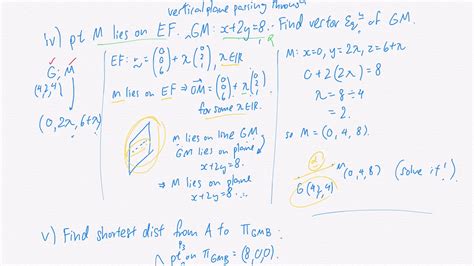 vertical plane passing through
iv) pt M lies on EF. GM: x+2y=8. Find vector Eqⁿ of GM.
G; M
(4,2,4)
(0, 2λ, 6+λ)
EF: r = (0 0 6) + λ(0 2 1), λ∈ℝ
M lies on EF ⇒ OM = (0 0 6) + λ(0 2 1)
for some λ∈ℝ.
M lies on line GM
GM lies on plane
x+2y=8.
⇒ M lies on plane
x+2y=8...
M: x=0, y=2λ, z=6+λ
0+2(2λ)=8
λ = 8÷4
= 2.
so M = (0, 4, 8)
M (0,4,8) (solve it!)
G(4,2,4)
v) Find shortest dist from A to Π GMB:
pt on Π GMB = (8,0,0).